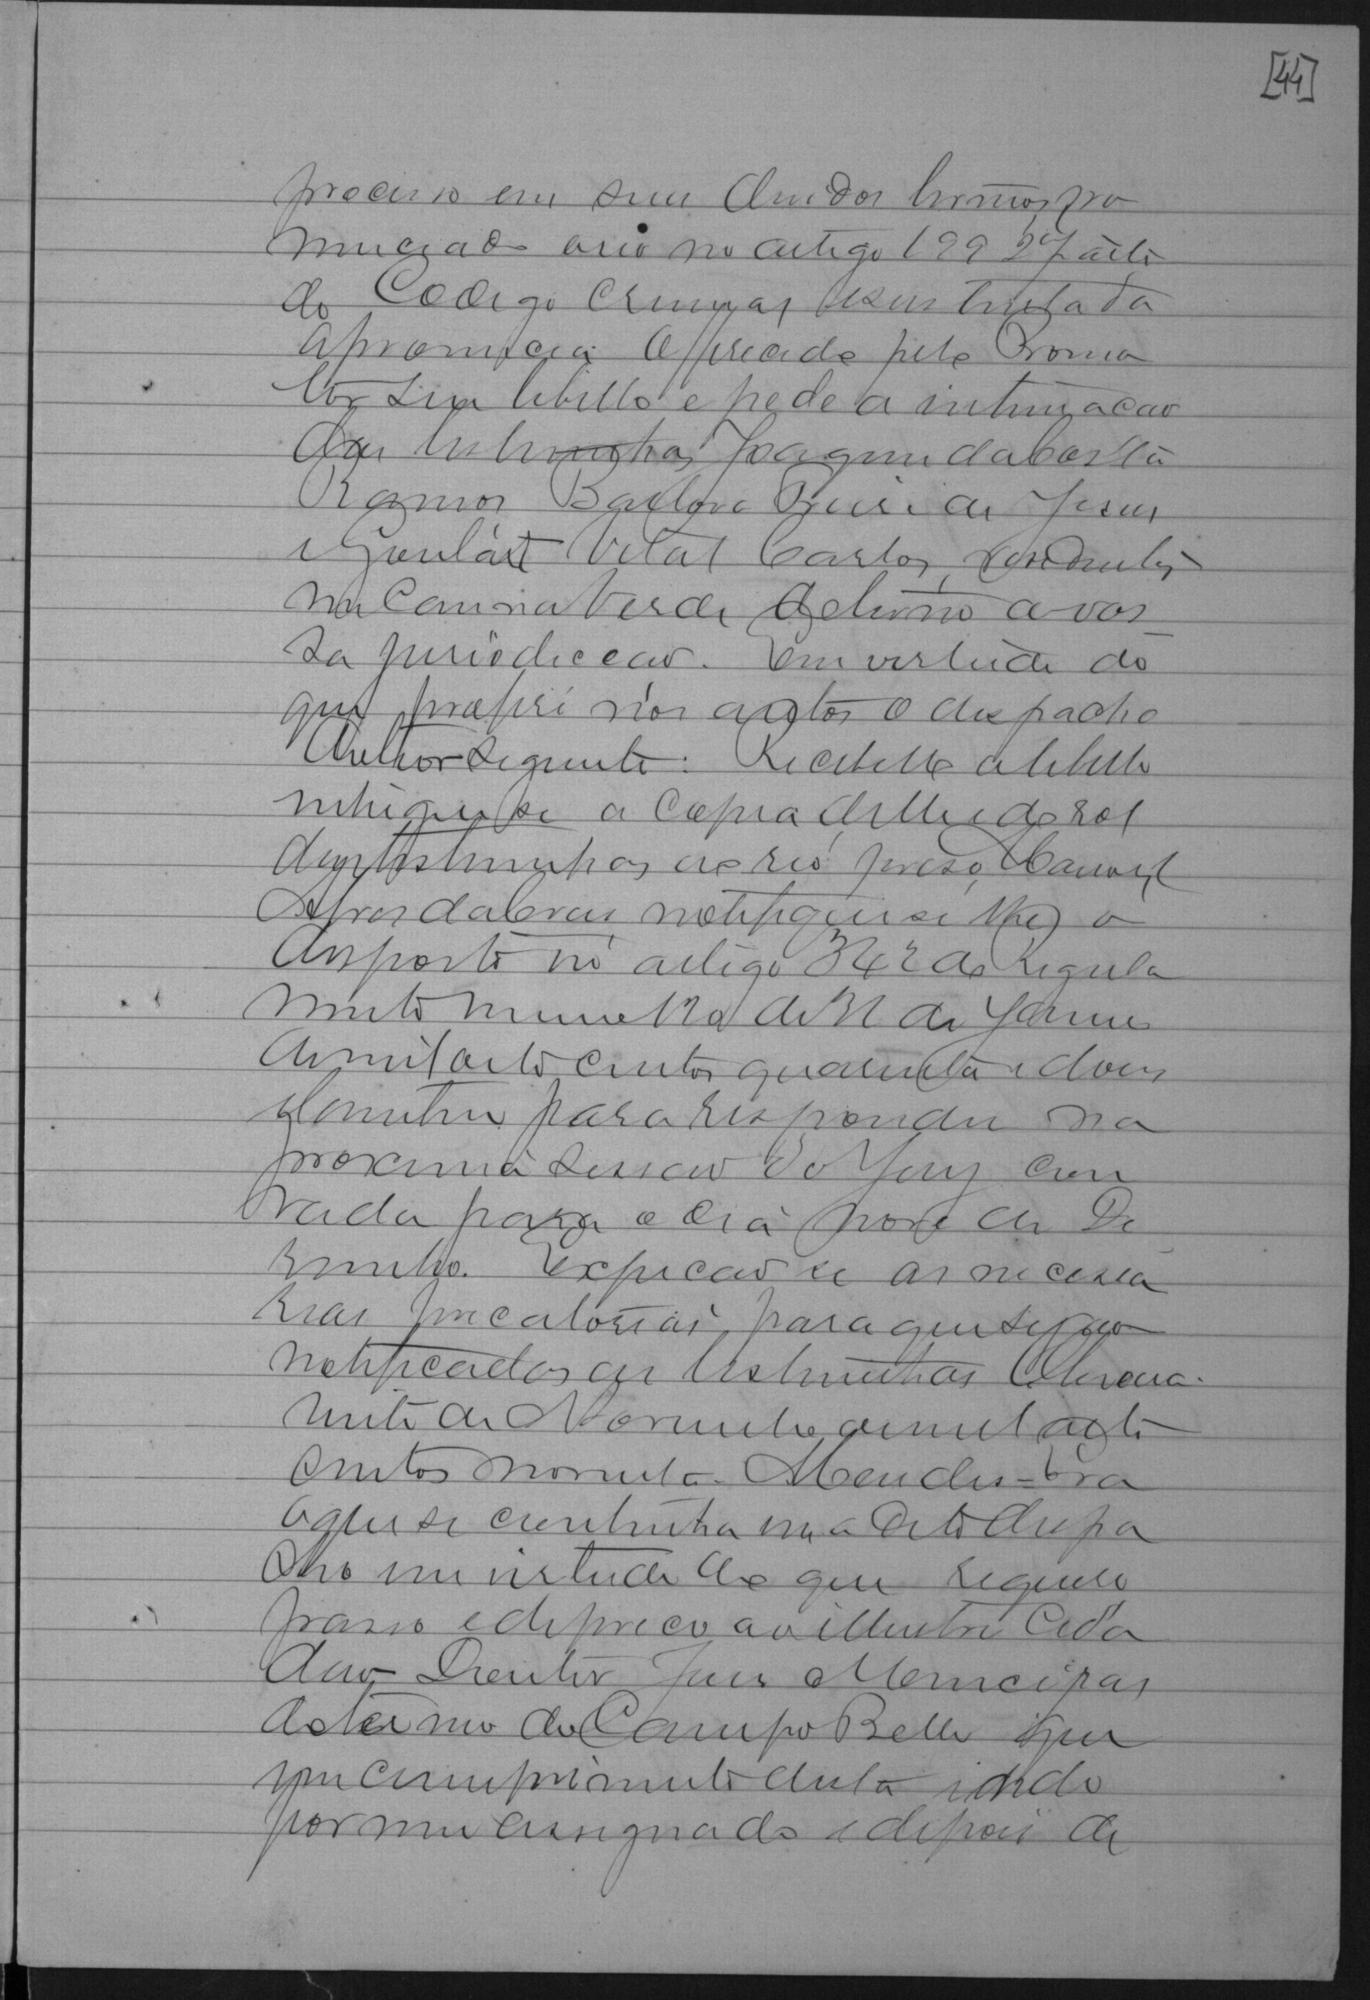 [44]
processo em seus devidos termos pro
nunciado o reo no artigo 199 2ª parte
do Codigo Criminal sustentada
a pronuncia offerecido pelo Promo
tor seu libello e pede a intimacao
das testemunhas Joaquim da Costa
Ramos de Jesus
e Vital Carlos, residentes
na Canna Verde termo a vos
sa jurisdiccao. Em virtude do
que proferi nos autos o despacho
do theor seguinte: Recebello o libello
intregue se a copia delle e do rol
das testemunhas ao reo preso, Manoel
Alves da Cruz, notifique se lhe o
disposto no artigo 342 do Regula
mento numero 120 de 31 de Janeiro
de mil oito centos quarenta e dous
para responder na
proxima sessao do Jury con
vocada para o dia nove de De
zembro. Expeçao se as necessa
rias precatorias para que sejao
notificados as testemunhas
de Novembro de mil oito
centos noventa. Mendes = Era
o que se continha em o dito despa
cho em virtude do que
passo e depreco ao illustre Cida
dao Doutor Juiz Municipal
do termo do Campo Bello que
em cumprimento desta indo
por mim assignado e depois de